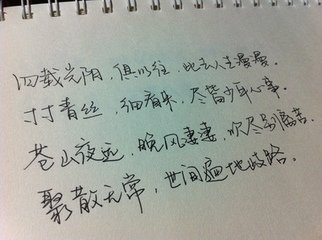 四载光阴，俱以往，此去人生漫漫。
寸寸青丝，细看来，尽皆少年心事。
苍山夜远，晚风凄凄，吹尽别离苦。
聚散无常，世间遍地歧路。